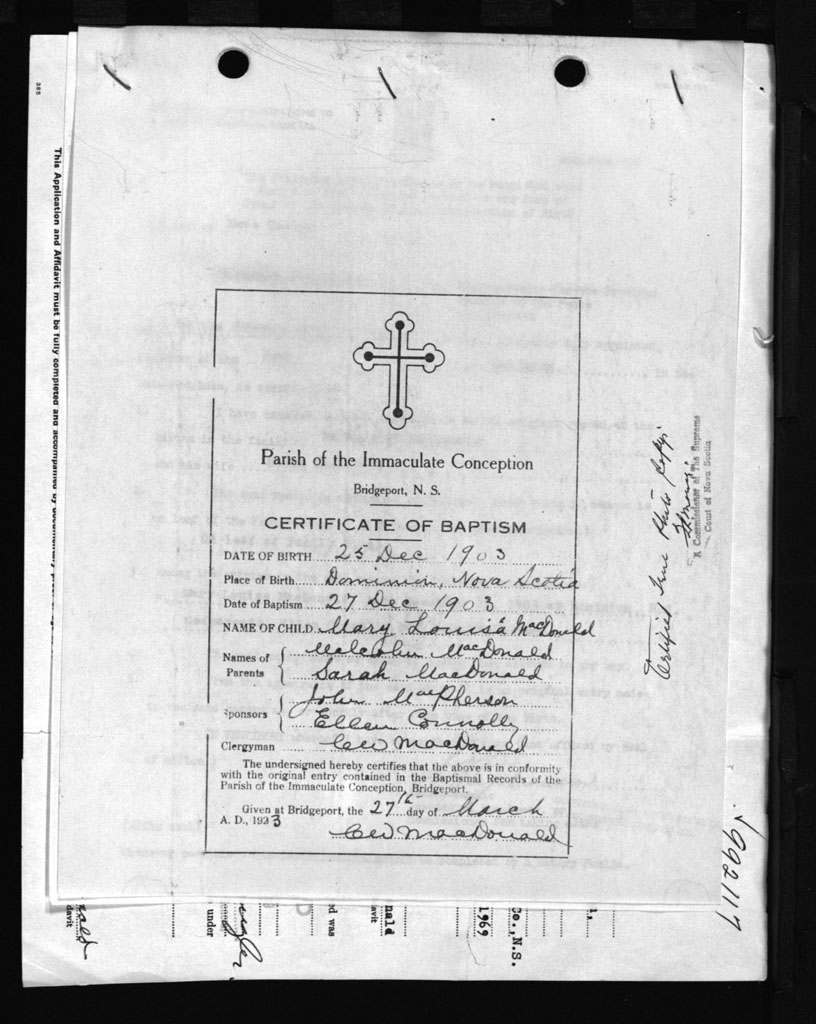 Parish of the Immaculate Conception
Bridgeport, N. S.
CERTIFICATE OF BAPTISM
DATE OF BIRTH 25 Dec 1903
Place of Birth Dominion, Nova Scotia
Date of Baptism 27 Dec 1903
NAME OF CHILD Mary Louisa MacDonald
Names of Parents { Malcolm MacDonald
Sarah MacDonald
Sponsors { John MacPherson
Ellen Connolly
Clergyman CW MacDonald
The undersigned hereby certifies that the above is in conformity
with the original entry contained in the Baptismal Records of the
Parish of the Immaculate Conception, Bridgeport.
Given at Bridgeport, the 27th day of March
A. D., 1923
CW MacDonald
Certified True Photo Copy.
A Commissioner of The Supreme
Court of Nova Scotia
992117
This Application and Affidavit must be fully completed and accompanied by
385
under
ed was
nald
davit
1969
Co., N.S.